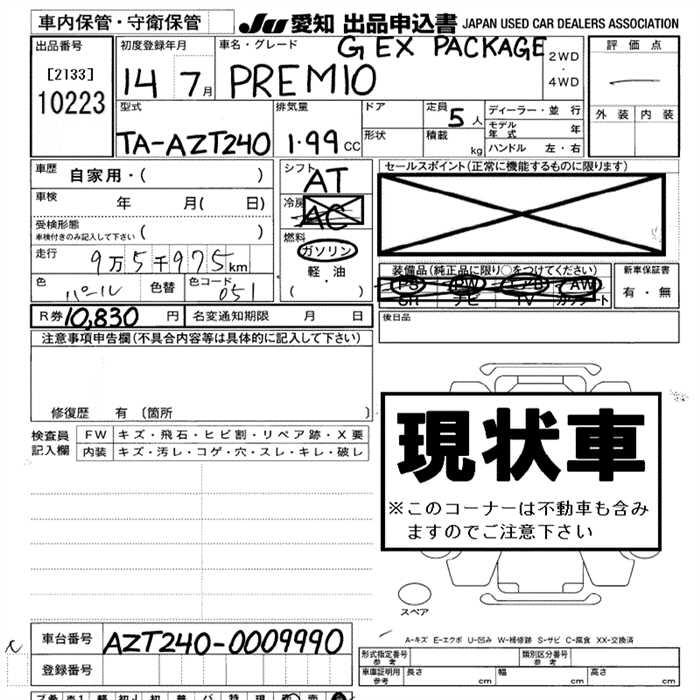 車内保管・守衛保管 JU 愛知 出品申込書 JAPAN USED CAR DEALERS ASSOCIATION
出品番号 初度登録年月 車名・グレード G EX PACKAGE 2WD・4WD 評価点
[2133] 10223 14 7月 PREMIO
型式 排気量 ドア 定員 5人 ディーラー・並行 外装 内装
TA-AZT240 1.99 CC 形状 積載 kg モデル年式 年
ハンドル 左・右
車歴 自家用・( ) シフト AT セールスポイント(正常に機能するものに限ります)
車検 年 月( 日) 冷房 AC
受検形態 車検付きのみ記入して下さい ( ) 燃料 ガソリン
走行 9万5千975km 軽・油 装備品(純正品に限り○をつけてください) 新車保証書
色 パール 色替 色コード 051 ( ) PS PW エアB AW 有・無
SR ナビ TV カワシート
R券 10,830円 名変通知期限 月 日 後日品
注意事項申告欄(不具合内容等は具体的に記入して下さい)
修復歴 有〔箇所 〕
現状車
※このコーナーは不動車も含みますのでご注意下さい
検査員記入欄 FW キズ・飛石・ヒビ割・リペア跡・X要
内装 キズ・汚レ・コゲ・穴・スレ・キレ・破レ
スペア
A-キズ E-エクボ U-凹み W-補修跡 S-サビ C-腐食 XX-交換済
車台番号 AZT240-0009990
登録番号
形式指定番号 参考 類別区分番号 参考
車庫証明用 参考 長さ cm 幅 cm 高さ cm